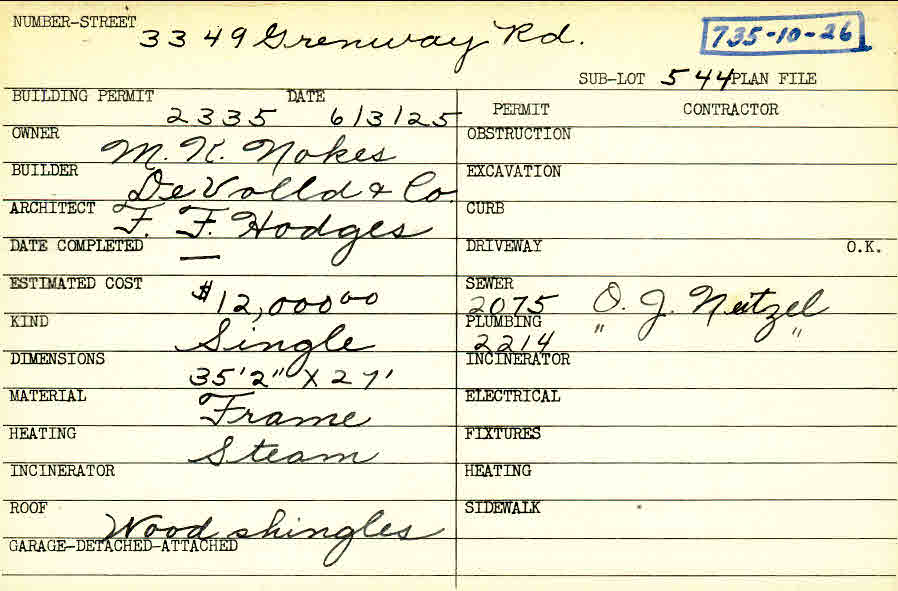 NUMBER-STREET 3349 Grenway Rd.
735-10-26
SUB-LOT 544 PLAN FILE
BUILDING PERMIT 2335 DATE 6/3/25
PERMIT CONTRACTOR
OWNER M. K. Nokes
OBSTRUCTION
BUILDER DeVolld & Co.
EXCAVATION
ARCHITECT F. F. Hodges
CURB
DATE COMPLETED —
DRIVEWAY O.K.
ESTIMATED COST $12,00000
SEWER 2075 O. J. Neitzel
KIND Single
PLUMBING 2214 " "
DIMENSIONS 35'2" X 27'
INCINERATOR
MATERIAL Frame
ELECTRICAL
HEATING Steam
FIXTURES
INCINERATOR
HEATING
ROOF Wood shingles
SIDEWALK
GARAGE-DETACHED-ATTACHED